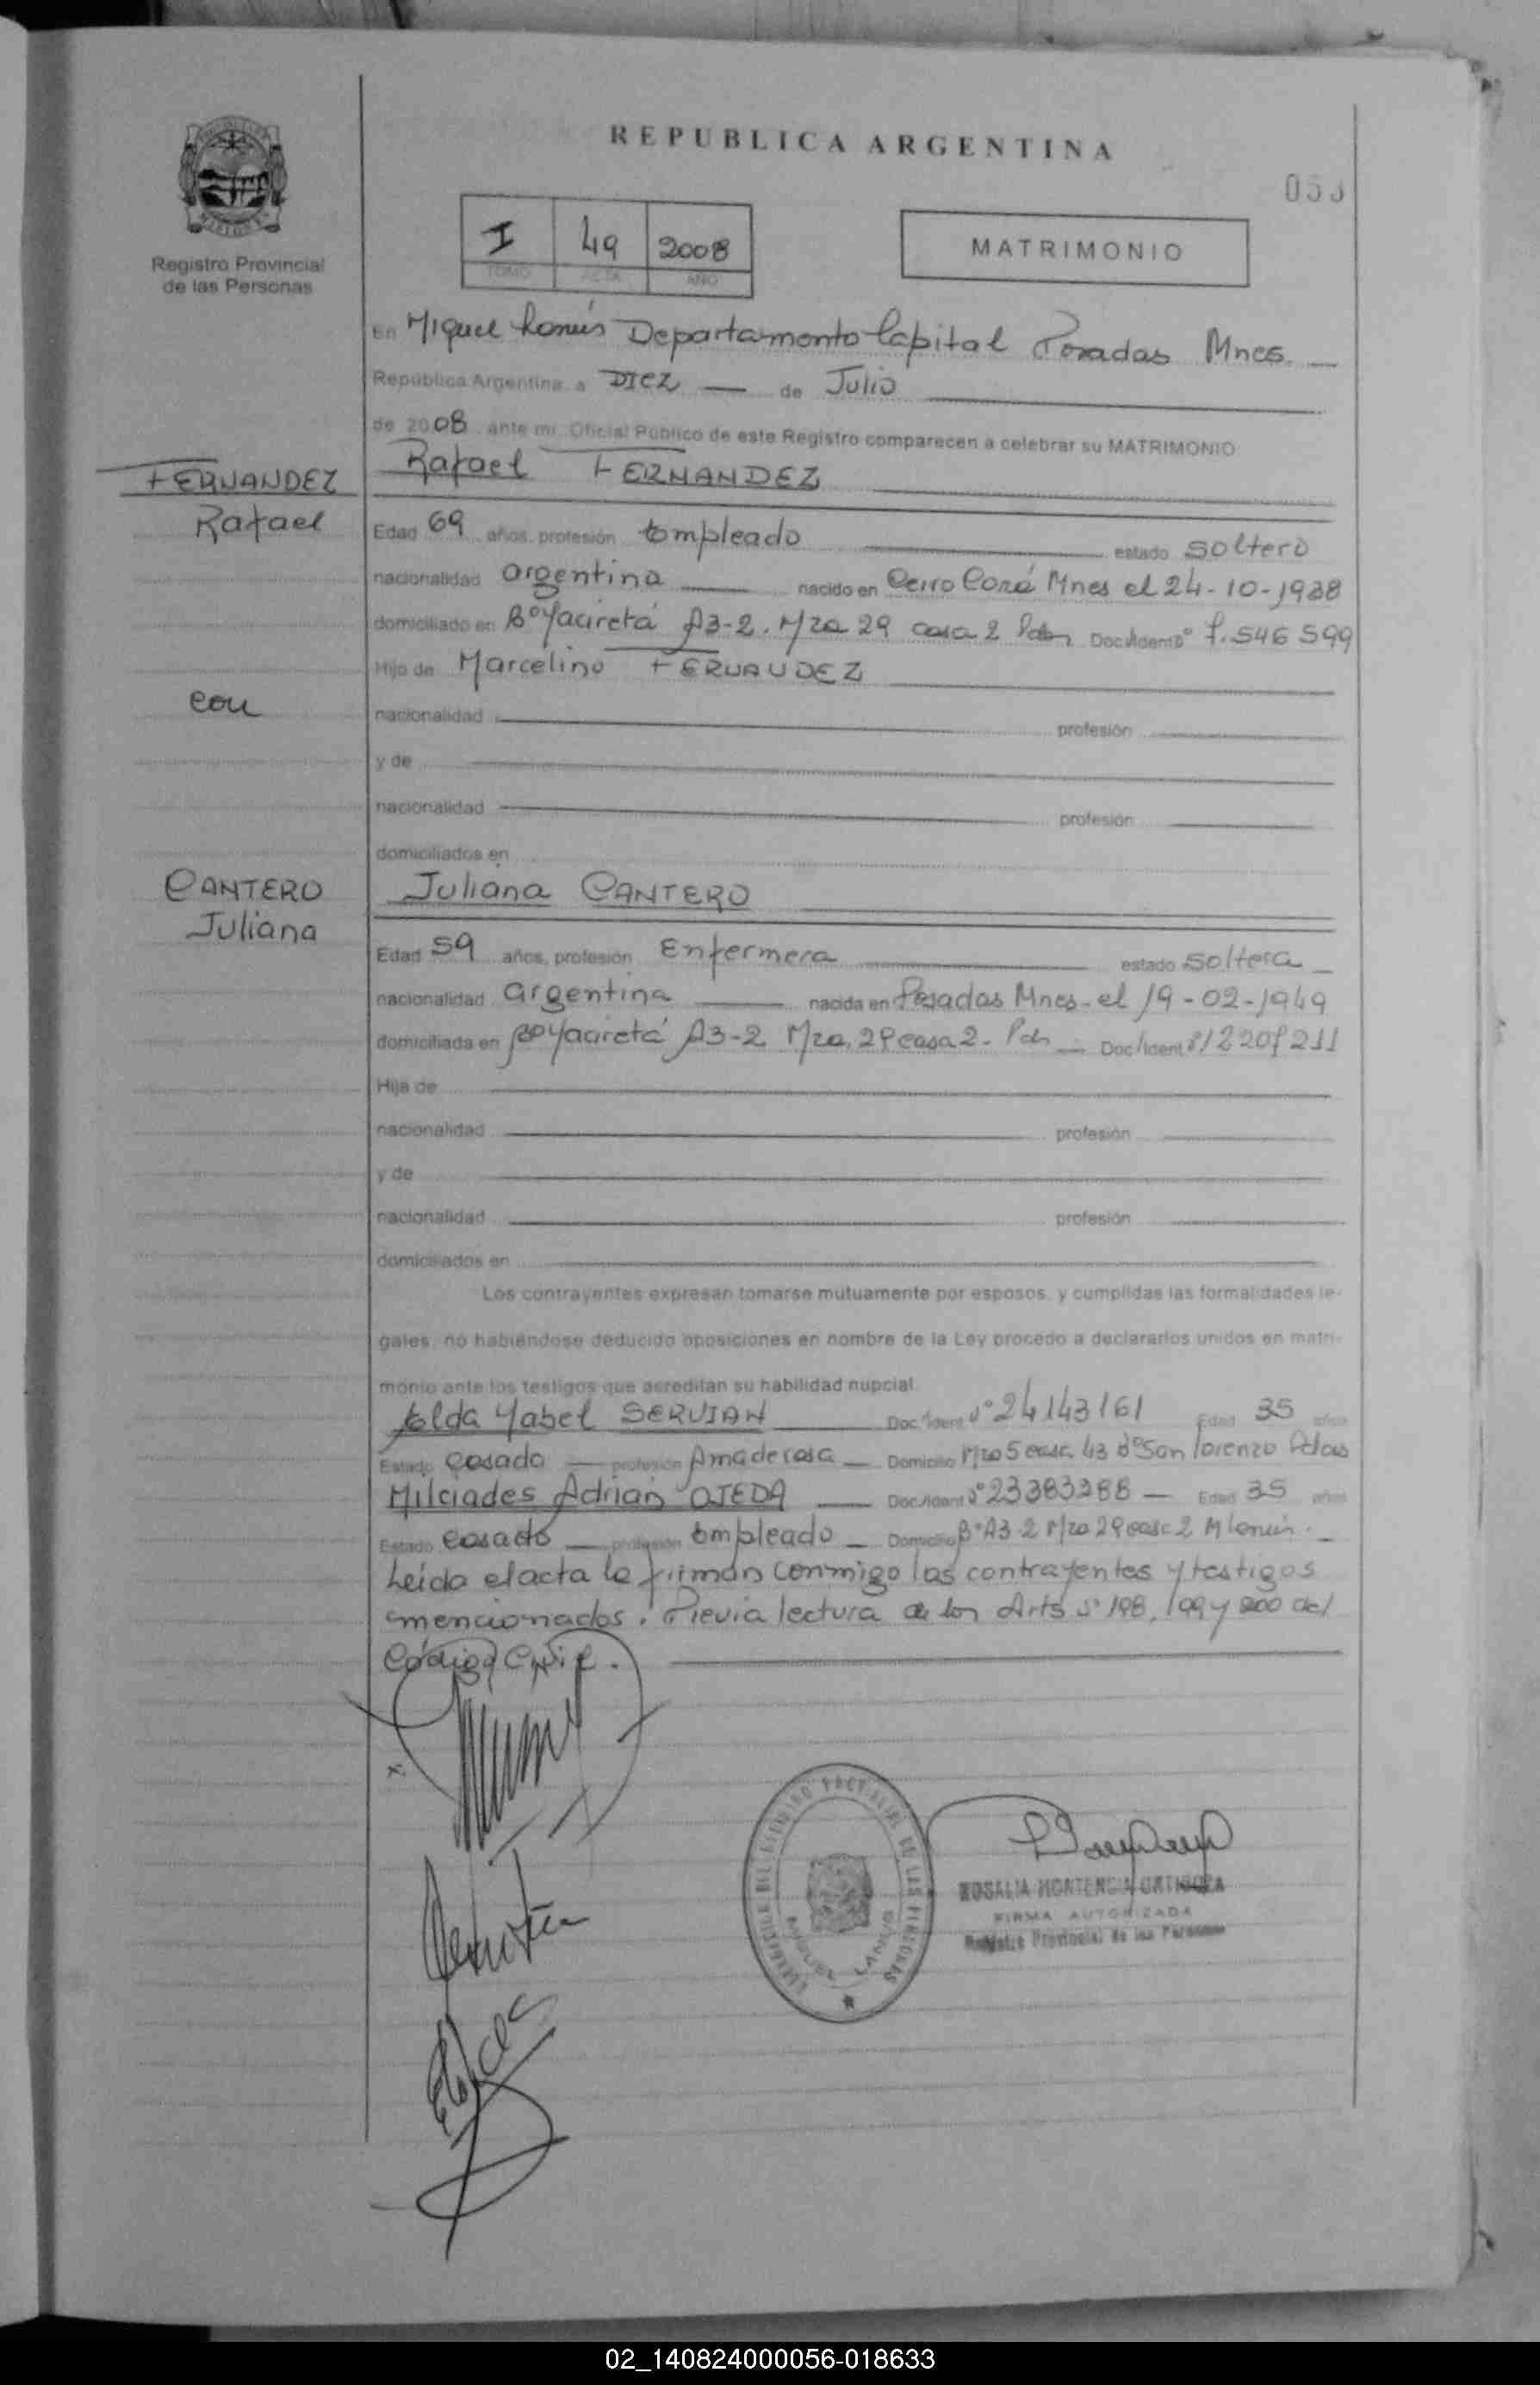 REPUBLICA ARGENTINA
Registro Provincial
de las Personas
I 49 2008
TOMO ACTA AÑO
MATRIMONIO
En Miguel Lanús Departamento Capital Posadas Mnes.
República Argentina a Diez de Julio
de 2008 ante mi, Oficial Público de este Registro comparecen a celebrar su MATRIMONIO
Rafael FERNANDEZ
FERNANDEZ
Rafael
Edad 69 años, profesión Empleado estado soltero
nacionalidad argentina nacido en Cerro Corá Mnes el 24-10-1938
domiciliado en B° Yaciretá A3-2. Mza 29 casa 2 Pdas Doc/Ident N° 7.546 599
Hijo de Marcelino FERNANDEZ
con
nacionalidad profesión
y de
nacionalidad profesión
domiciliados en
CANTERO
Juliana
Juliana CANTERO
Edad 59 años, profesión Enfermera estado soltera
nacionalidad argentina nacida en Posadas Mnes. el 19-02-1949
domiciliada en B° Yaciretá A3-2 Mza. 29 casa 2- Doc/Ident
Hija de
nacionalidad profesión
y de
nacionalidad profesión
domiciliados en
Los contrayentes expresan tomarse mutuamente por esposos, y cumplidas las formalidades le-
gales, no habiéndose deducido oposiciones en nombre de la Ley procedo a declararlos unidos en matri-
monio ante los testigos que acreditan su habilidad nupcial.
Elda Yabel SERVIAN Doc/Ident N° 24143161 Edad 35 años
Estado casada profesión Ama de casa Domicilio Mza 5 casa 43 B° San Lorenzo Pdas
Milciades Adrian OJEDA Doc/Ident N° 23383388 Edad 35 años
Estado casado profesión Empleado Domicilio B° A3-2 Mza 29 casa 2 M Lanús.
Leída el acta la firman conmigo los contrayentes y testigos
mencionados. Previa lectura de los Arts N° 198, 199 y 200 del
Código Civil.
x.
MIGUEL LANUS
ROSALIA HORTENCIA ORTIGOZA
FIRMA AUTORIZADA
Registro Provincial de las Personas
02_140824000056-018633